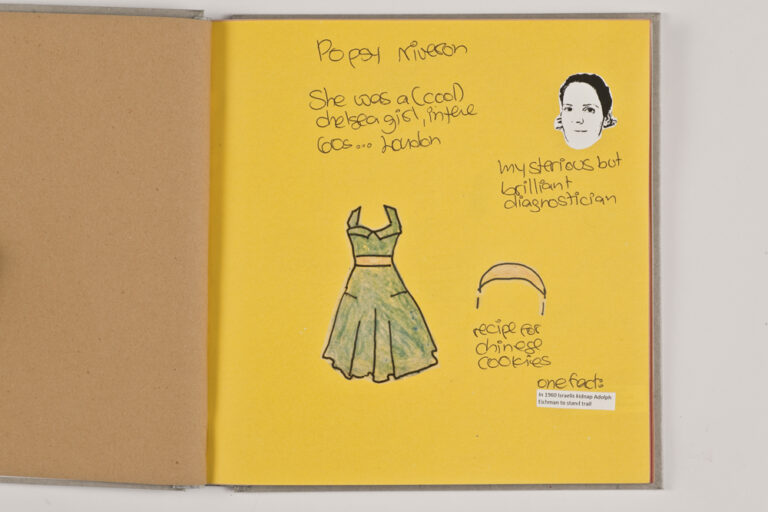 Popsy Niveron
She was a (cool)
chelsea girl, in the
60s... London
mysterious but
brilliant
diagnostician
recipe for
chinese
cookies
one fact:
In 1960 Israelis kidnap Adolph
Eichman to stand trail